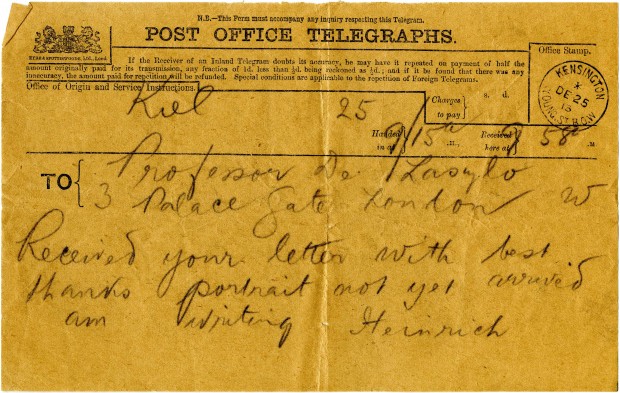 N.B.—This Form must accompany any inquiry respecting this Telegram.
POST OFFICE TELEGRAPHS.
If the Receiver of an Inland Telegram doubts its accuracy, he may have it repeated on payment of half the
amount originally paid for its transmission, any fraction of 1d. less than ½d. being reckoned as ½d.; and if it be found that there was any
inaccuracy, the amount paid for repetition will be refunded. Special conditions are applicable to the repetition of Foreign Telegrams.
Office of Origin and Service Instructions.
Office Stamp.
KENSINGTON
DE 25
13
Kiel
25
Charges
to pay
s. d.
Handed
in at
9/15 a
M.,
Received
here at
9 58 a
M
TO
Professor De Laszlo
3 Palace Gate London W
Received your letter with best
thanks portrait not yet arrived
am writing Heinrich